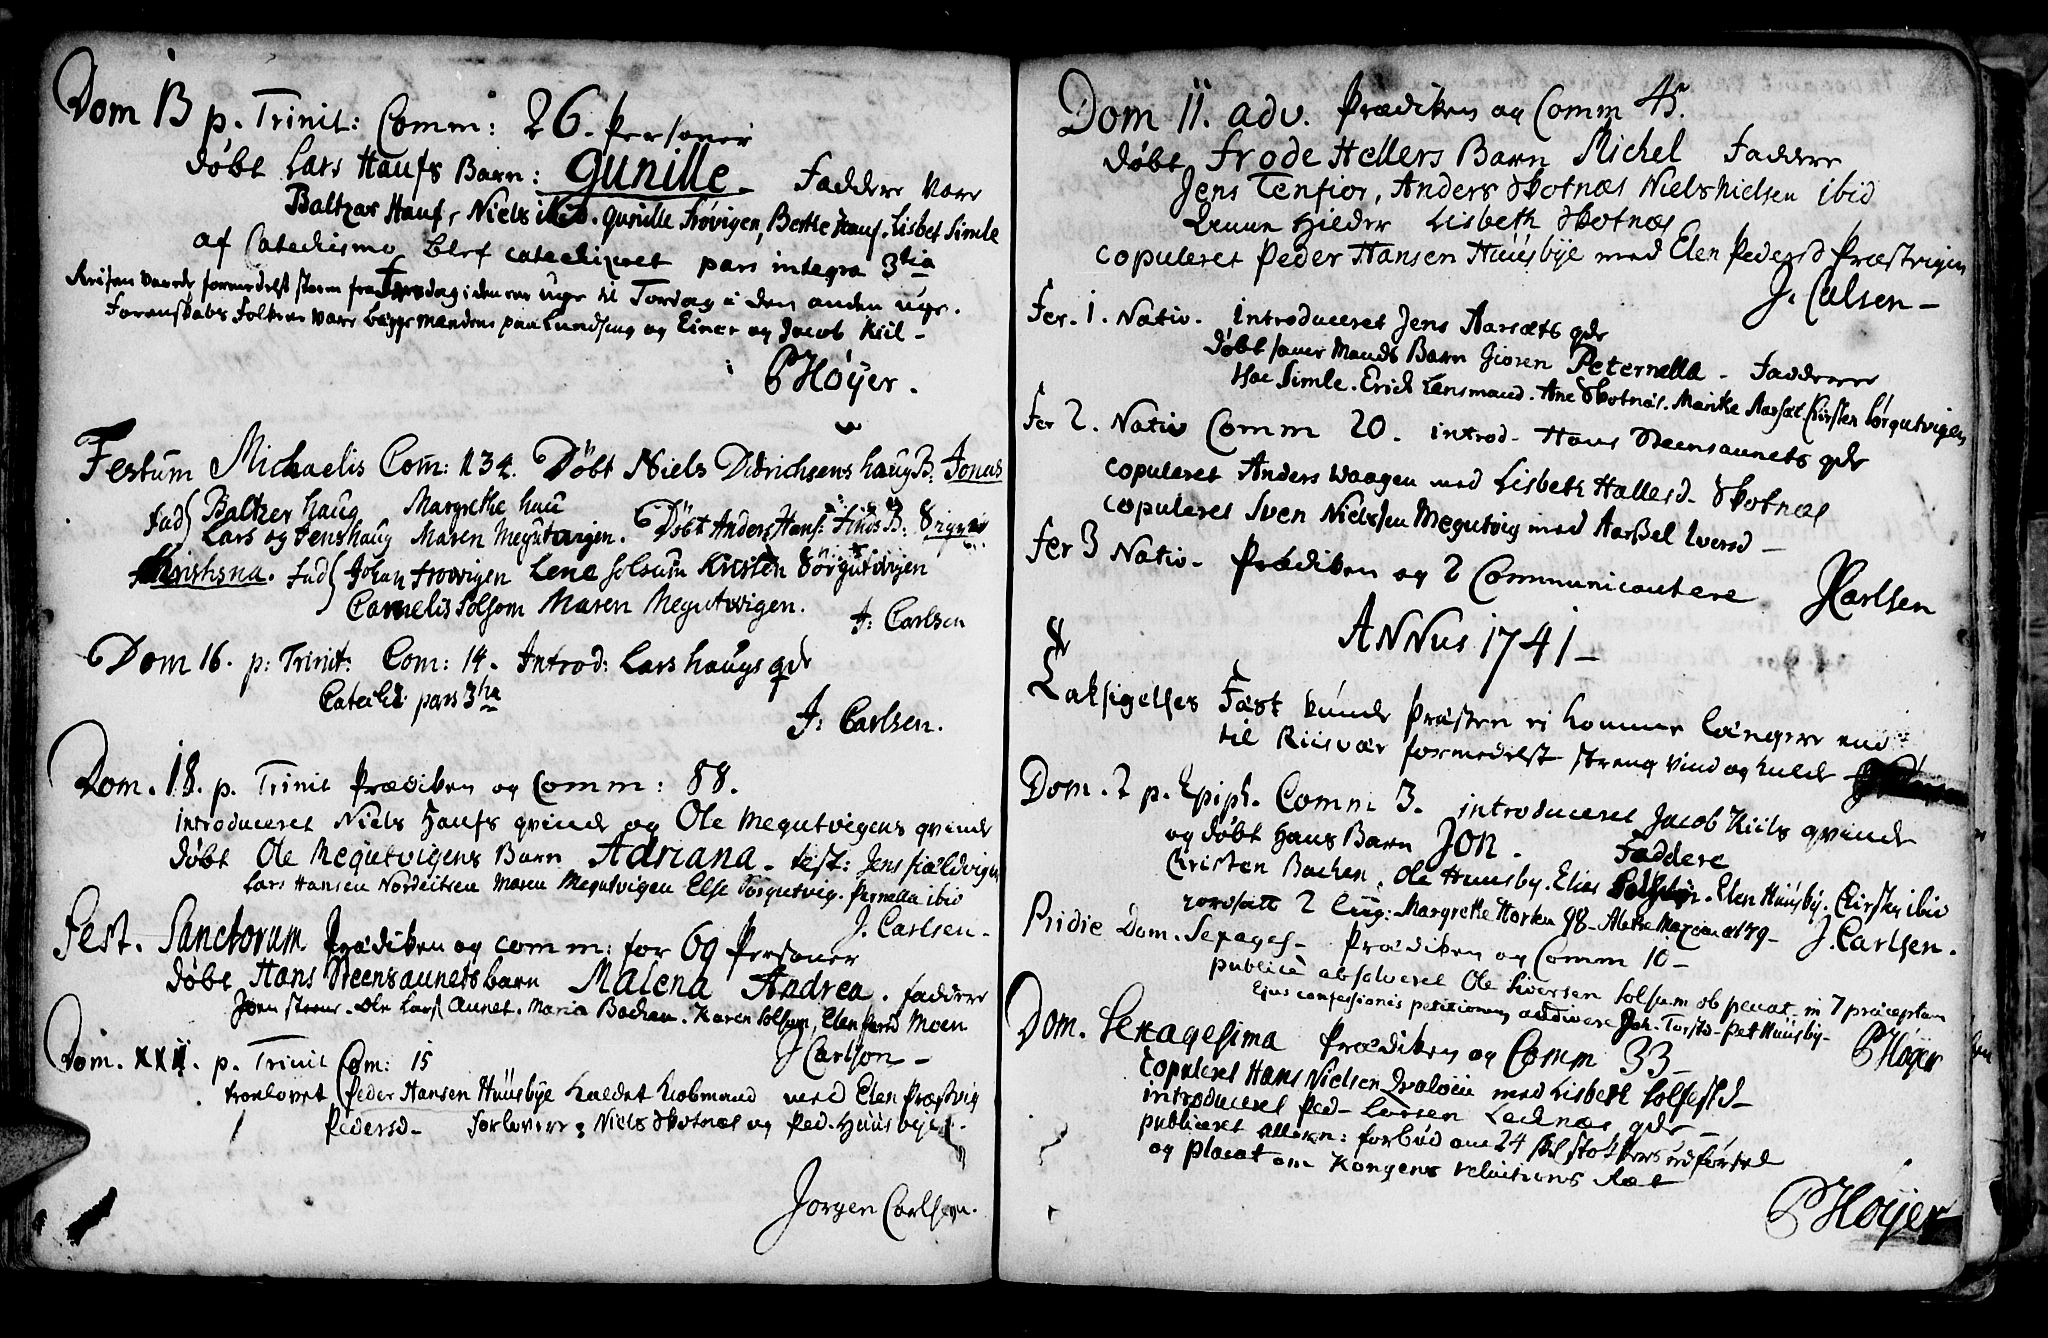 Dom 13 p. Trinit: Comm: 26. Personer
døbt Lars Haufs Barn: Gunille - Faddere vare
Baltzar Hauf, Niels ibid. Gunille Trøvigen, Berthe Hauf. Lisbet Simle
af Catechismo blef catechizeret pars integra 3tia
Reisen varede formedelst storm fra Torsdag i den ene uge til Torsdag i den anden uge.
Forenskabs Folkene vare begge mændene paa Lundseng og Einer og Jacob Kiil -
PHøyer.
Festum Michaelis Com: 134. Døbt Niels Didrichsens haug B: Jonas
fad Baltzer haug Margrethe hau
Lars og Jens haug Maren Megutvigen. Døbt Anders Hans: Finds B: Signe
Christina. fad Johan Trovigen Lene Solsum Kristen Sørgutvigen
Cornelis Solsom Maren Megutvigen.
J: Carlsen
Dom 16. p: Trinit: Com: 14. Introd: Lars haugs qde
Catech: pars 3tia
J: Carlsen.
Dom. 18. p. Trinit Prædiken og Comm: 88.
introduceret Niels Haufs qvinde og Ole Megutvigens qvinde
døbt Ole Megutvigens Barn Adriana - test: Jens Fieldvigen
Lars Hansen Nordeitsen Maren Megutvigen Else Sørgutvig. Pernella ibid
J. Carlsen -
Fest. Sanctorum Prædiken og comm: for 69 Personer
døbt Hans Steensaunets barn Malena Andrea. faddere
Joen Steens. Ole Lars Aunet. Maria Bachen. Karen Solsum, Elen Peersd Moen
J Carlson -
Dom. XXII. p. Trinit Com: 15
trorlovet Peder Hansen Huusbye kaldet Kiobmand med Elen Præstvig
Pedersd - forlovere: Niels Skotnæs og Ped. Huusbye.
Jorgen Carlsen.
Dom II. adv. Prædiken og Comm 45.
døbt Frode Hellers Barn Michel Faddere
Jens Tenfior, Anders Skotnæs Niels Nielsen ibid
Hilder Lisbeth Skotnæs
copuleret Peder Hansen Huusbye med Elen Pedersd Præstvigen
J. Calsen -
Fer. 1. Nativ. introduceret Jens Aarsæts qde
døbt samme Mands Barn Gioren Peternella - Faddere
Hoe Simle. Erich Lensmand. Ane Skotnæs. Marike Aarsæt. Kirsten Sørgutvigen
Fer 2. Nativ Comm 20. introd - Hans Steensaunets qde
copuleret Anders Waagen med Lisbeth Hallesd - Skotnæs
copuleret Sven Nielssen Megutvig med Aarßel Iversd -
Fer 3 Nativ - Prædiken og 2 Communicantere
JCarlsen
ANNUS 1741 -
Taksigelses Fæst kunde Præsten ei komme længere end
til Riisvær formedelst streng vind og kulde
Dom. 2 p. Epiph. Comm 3. introduceret Jacob Kiils qvinde
og døbt Hans Barn Jon. Faddere
Christen Bachen. Ole Huusby. Elias Solsem. Elen Huusby. Kirsten ibid
jordsatt 2 liig: Margrethe Horken 98 - Alethe Maxima 79 - J. Carlsen.
Pridie Dom. Sexages - Prædiken og Comm 10 -
publicè absolveret Ole Iversen Solsum ob peccat. in 7 præceptum
Ejus confessionis petitionem audivere Joh. Torsts - Pet Huusby -
PHøyer
Dom. Sexagesima Prædiken og Comm 33 -
copuleret Hans Nielsen Qvaløen med Lisbeth Solfestd -
introduceret Ped - Larsen Lecknæs qde -
publiceret allern: forbud om 24 skil stokkers udførsel
og placat om Kongens relutions Ræt
PHøyer